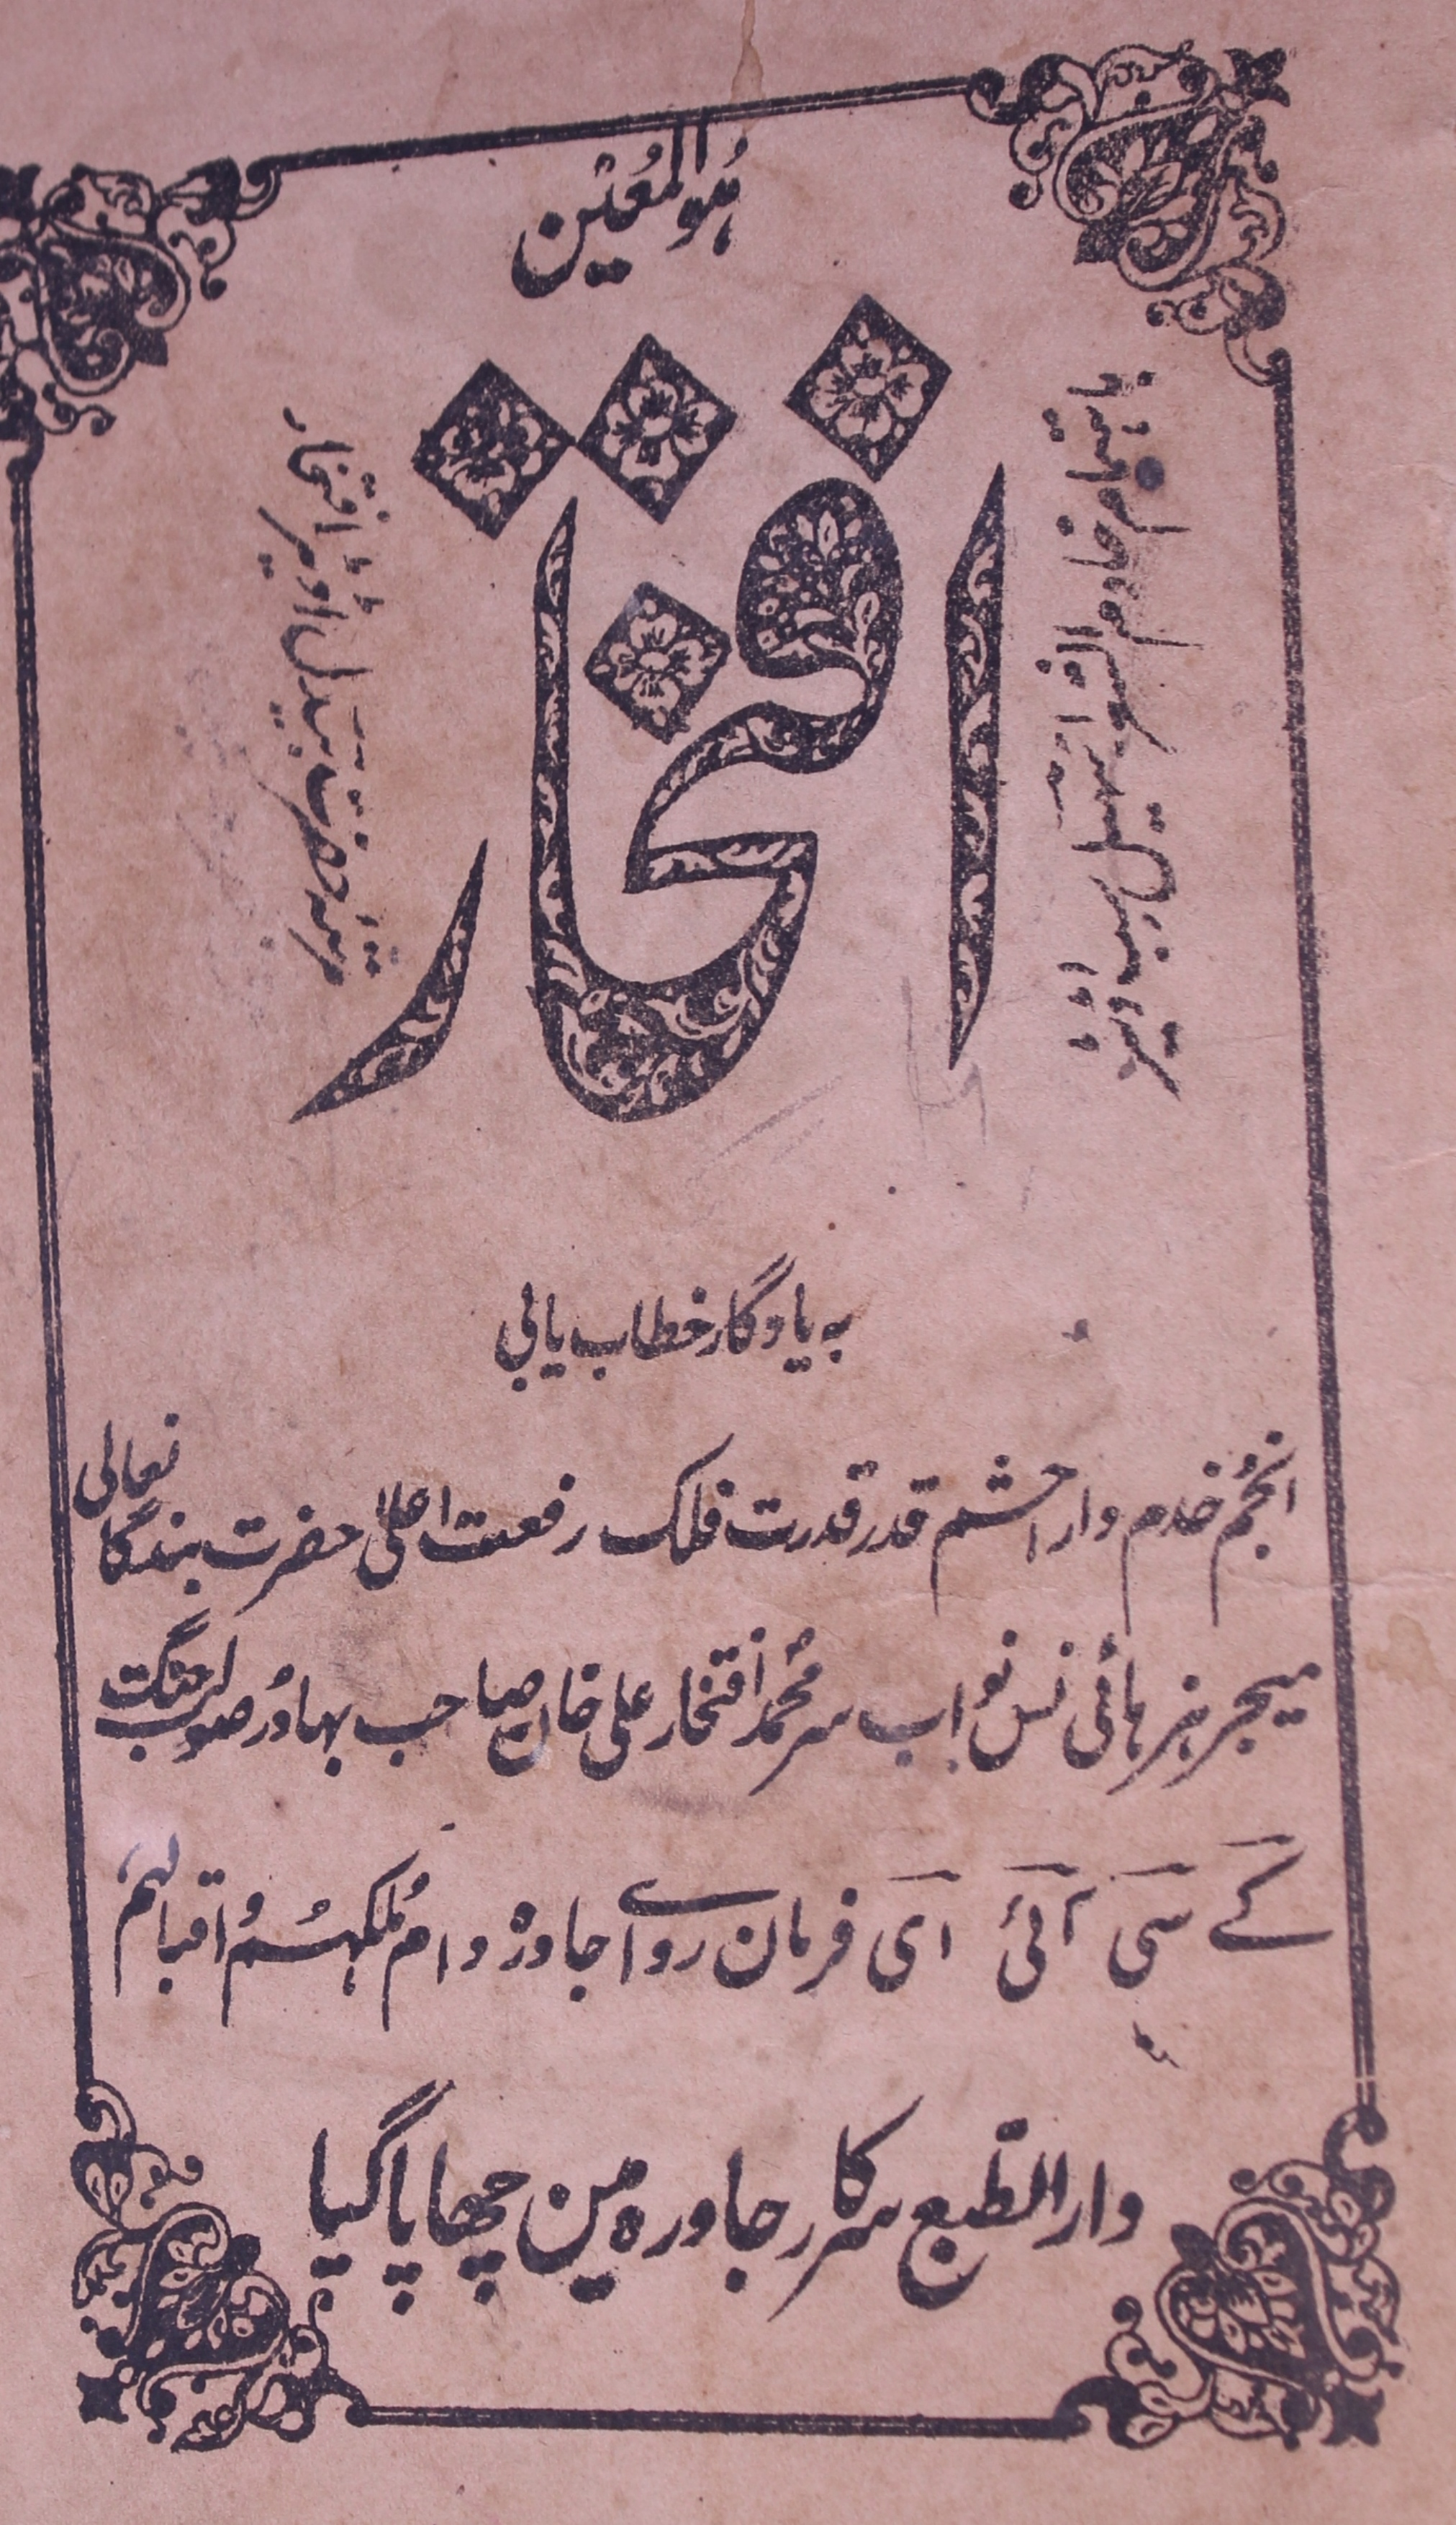 ہُوالمُعین
افتخار
باہتمام خادم الشعرا سہیل سب اڈیٹر
حضرت بیدل اڈیٹر افتخار
بہ یادگار خطاب یابی
انجُم خدم دارا حشم قدر قدرت فلک رفعت اعلیٰ حضرت بندگانعالی
میجر ہز ہائی نس نواب سر محمد افتخار علی خان صاحب بہادُر صولت جنگ
کے سی آئی ای فرمان روائے جاورہ دامُ مُلکہُم وُ اقبالہُم
دارالطبع سرکار جاورہ مین چھاپا گیا